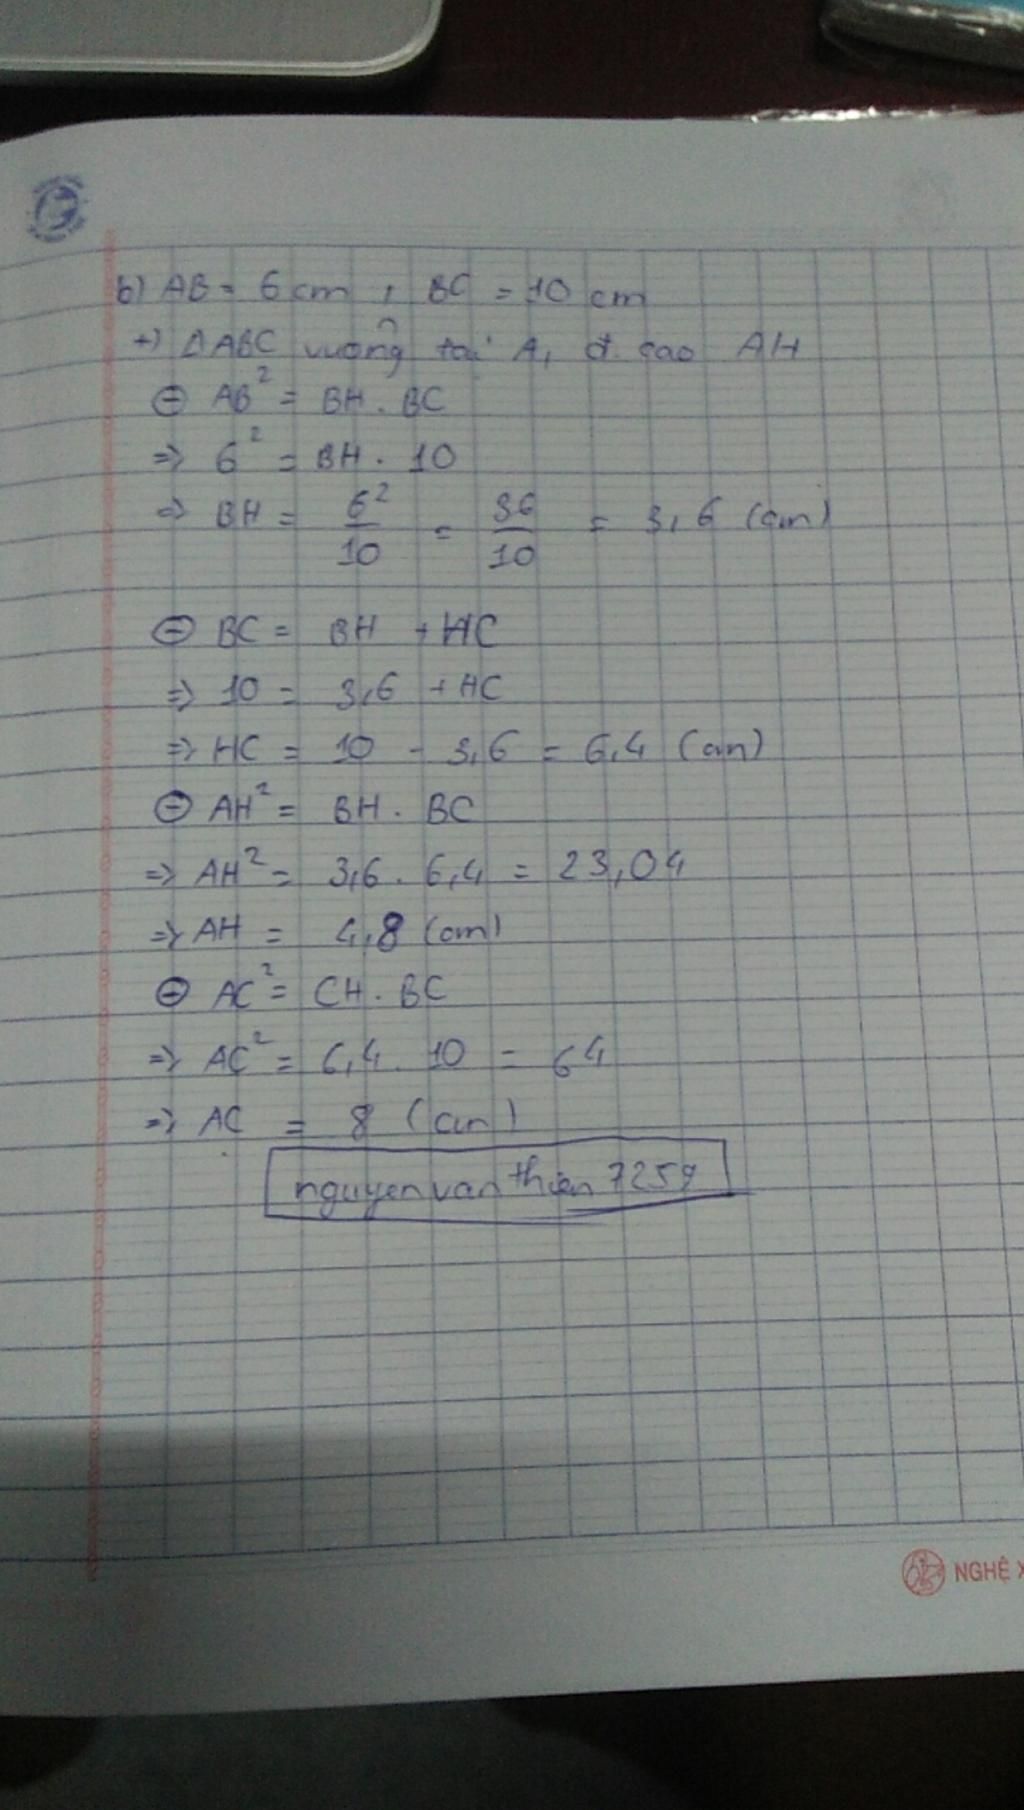 b) AB = 6 cm , BC = 10 cm
+) ΔABC vuông tại A, đ. cao AH
⊖ AB² = BH . BC
=> 6² = BH . 10
=> BH = 6²/10 = 36/10 = 3,6 (cm)
⊖ BC = BH + HC
=> 10 = 3,6 + HC
=> HC = 10 - 3,6 = 6,4 (cm)
⊖ AH² = BH . BC
=> AH² = 3,6 . 6,4 = 23,04
=> AH = 4,8 (cm)
⊖ AC² = CH . BC
=> AC² = 6,4 . 10 = 64
=> AC = 8 (cm)
nguyenvanthien7259
NGHỆ